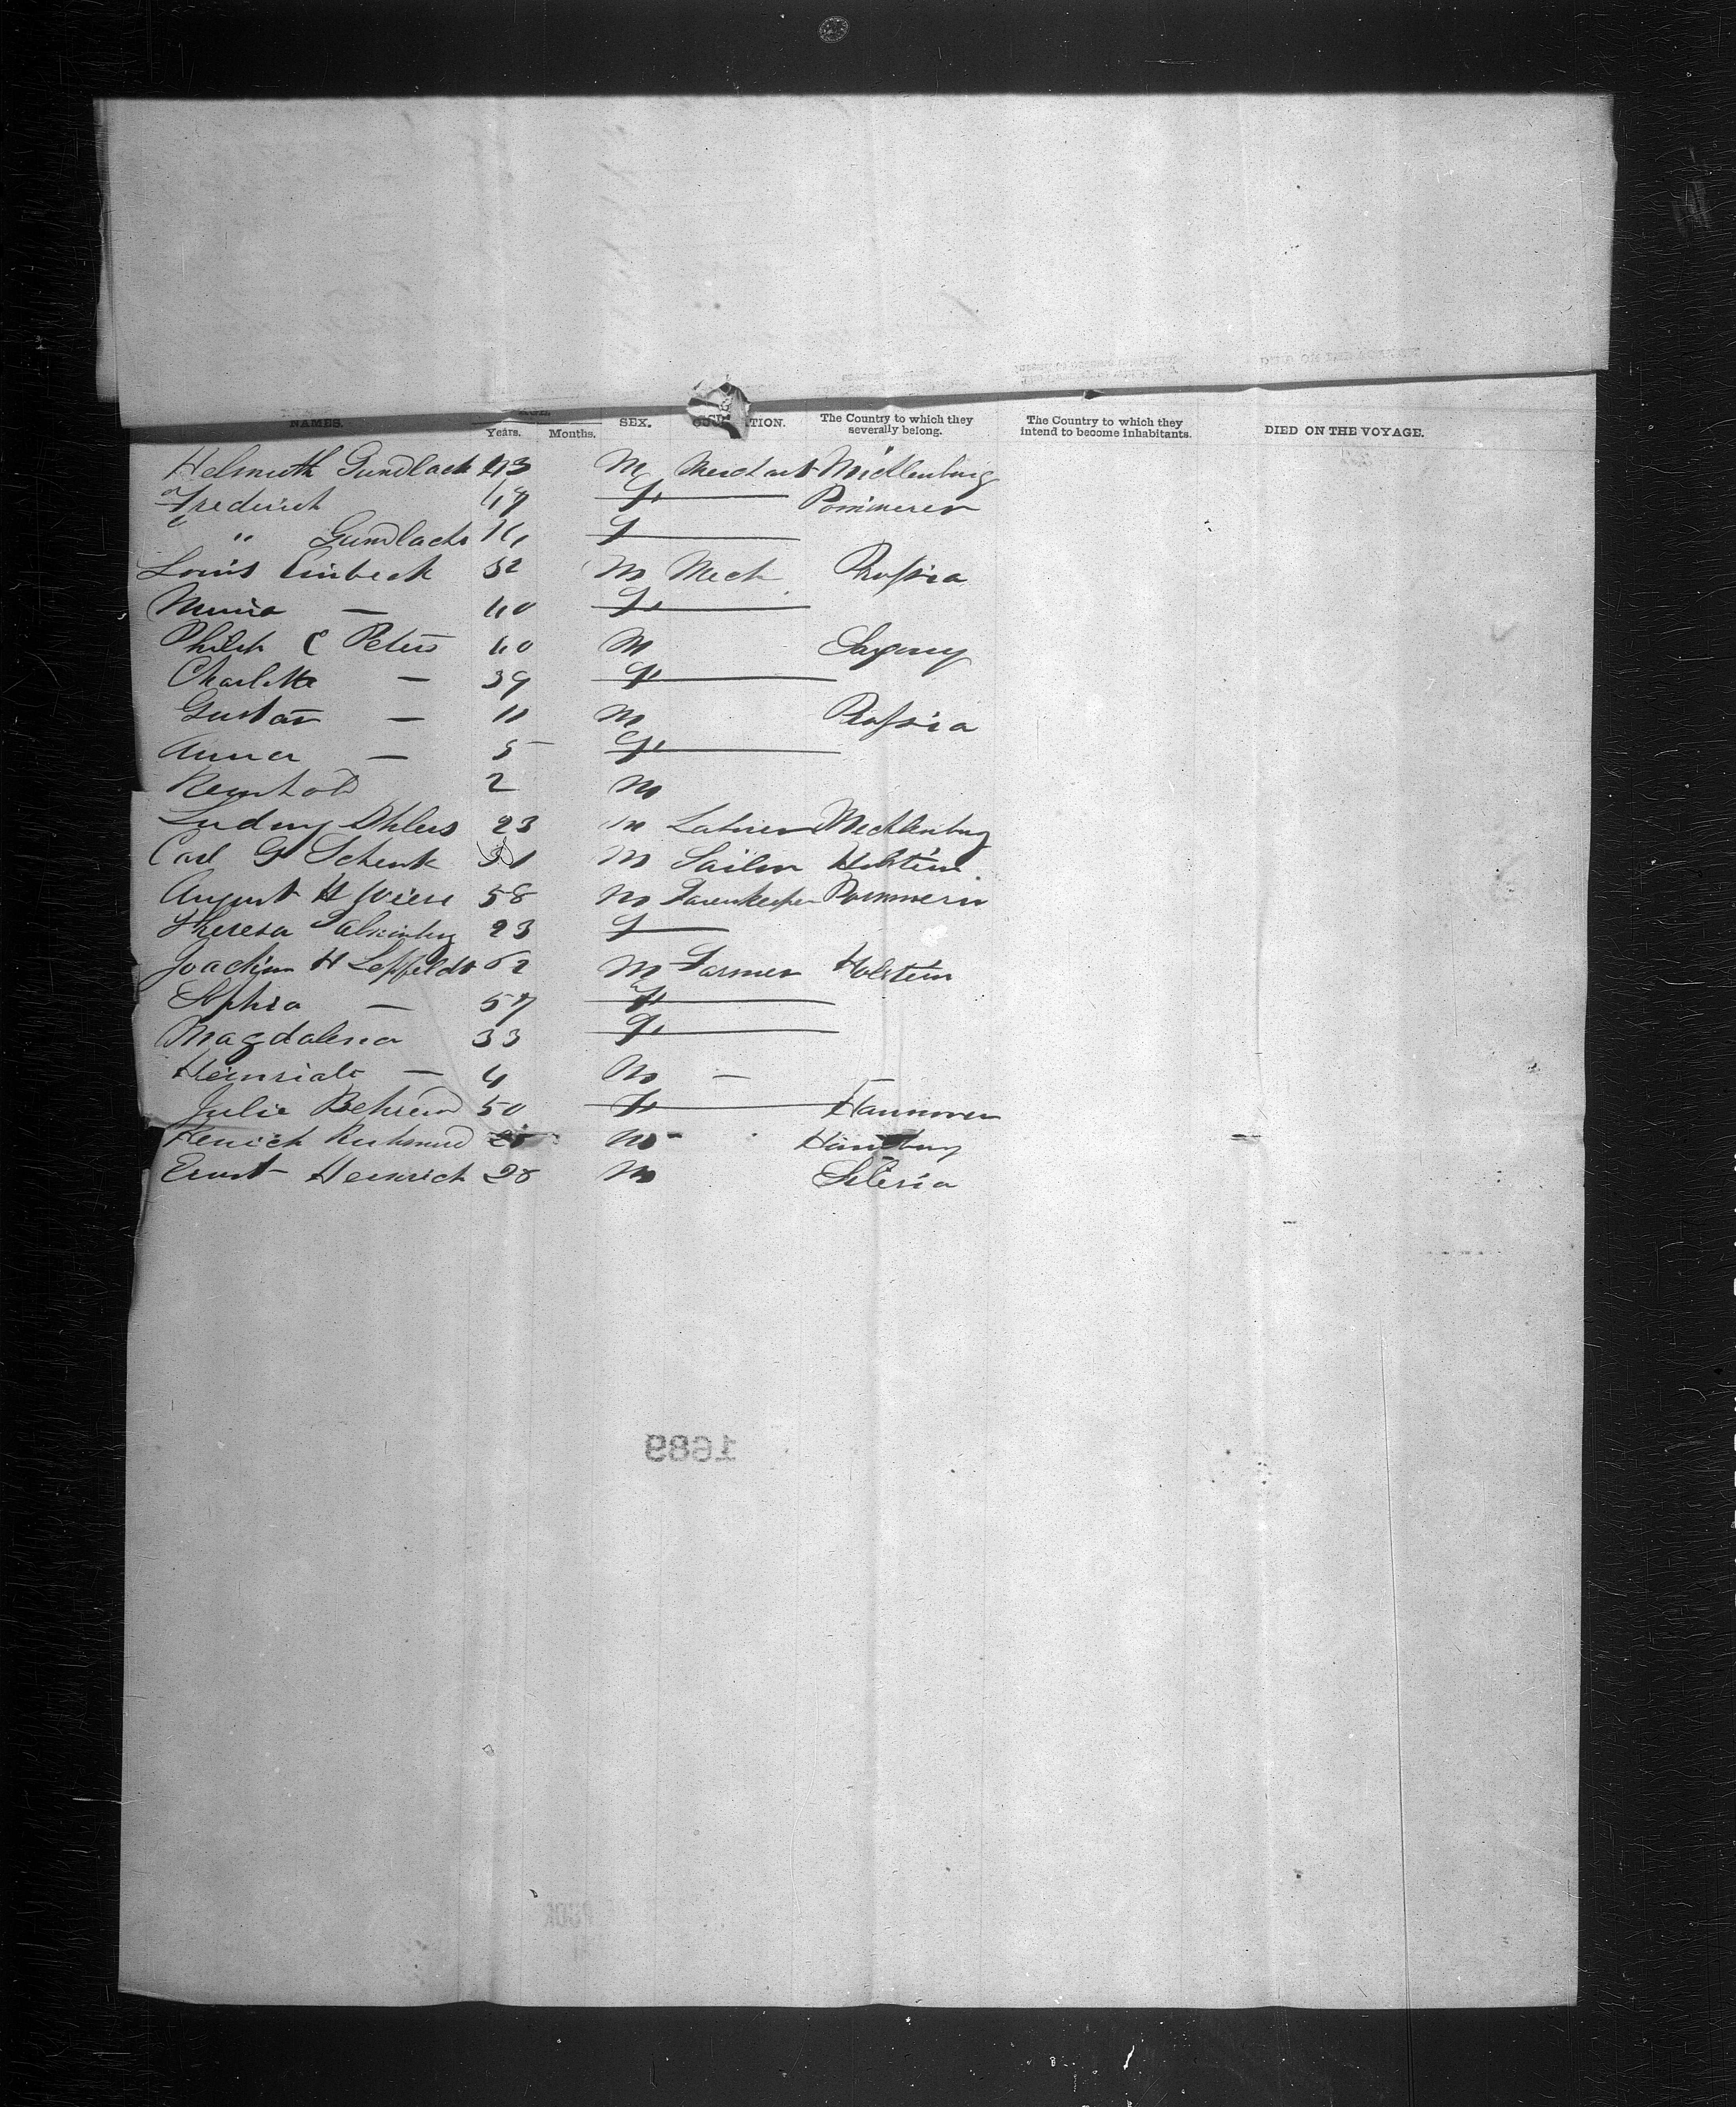 NAMES. Years. Months. SEX. The Country to which they severally belong. The Country to which they intend to become inhabitants. DIED ON THE VOYAGE.
Helmuth Gundlach 43 M Merchant Mecklenburg
Fredirich 47 F Pommeren
" Gundlach 16 F
Louis Einbeck 52 M Mech Prussia
Minna — 40 F
Philip C Peters 40 M Saxony
Charlotte — 39 F
Gustav — 11 M Prussia
Anna — 5 F
Reinhold 2 M
Ludwig Ohlers 23 M Laborer Mecklenburg
Carl G Schenk 31 M Sailor Holstein
August H Wiese 58 M Pommern
Theresa 23 F
Joachim H Leppfeldt 62 M Farmer Holstein
Sophia — 57 F
Magdalena 33 F
— 4 M —
Julie Behrend 50 F Hannover
Henrich M
Ernst Heinrich 28 M Silesia
1689